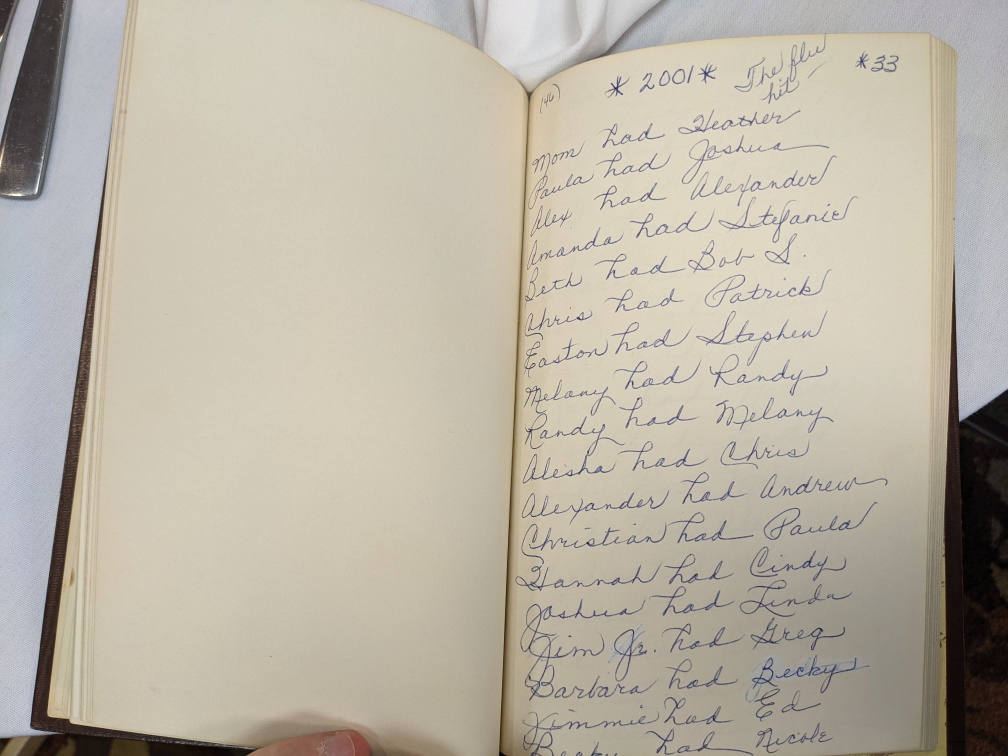 (46) * 2001 * The flu *33
hit
Mom had Heather
Paula had Joshua
Alex had Alexander
Amanda had Stefanie
Beth had Bob S.
Chris had Patrick
Easton had Stephen
Melany had Randy
Randy had Melany
Alesha had Chris
Alexander had Andrew
Christian had Paula
Hannah had Cindy
Joshua had Linda
Jim Jr. had Greg
Barbara had Becky
Jimmie had Ed
Becky had Nicole